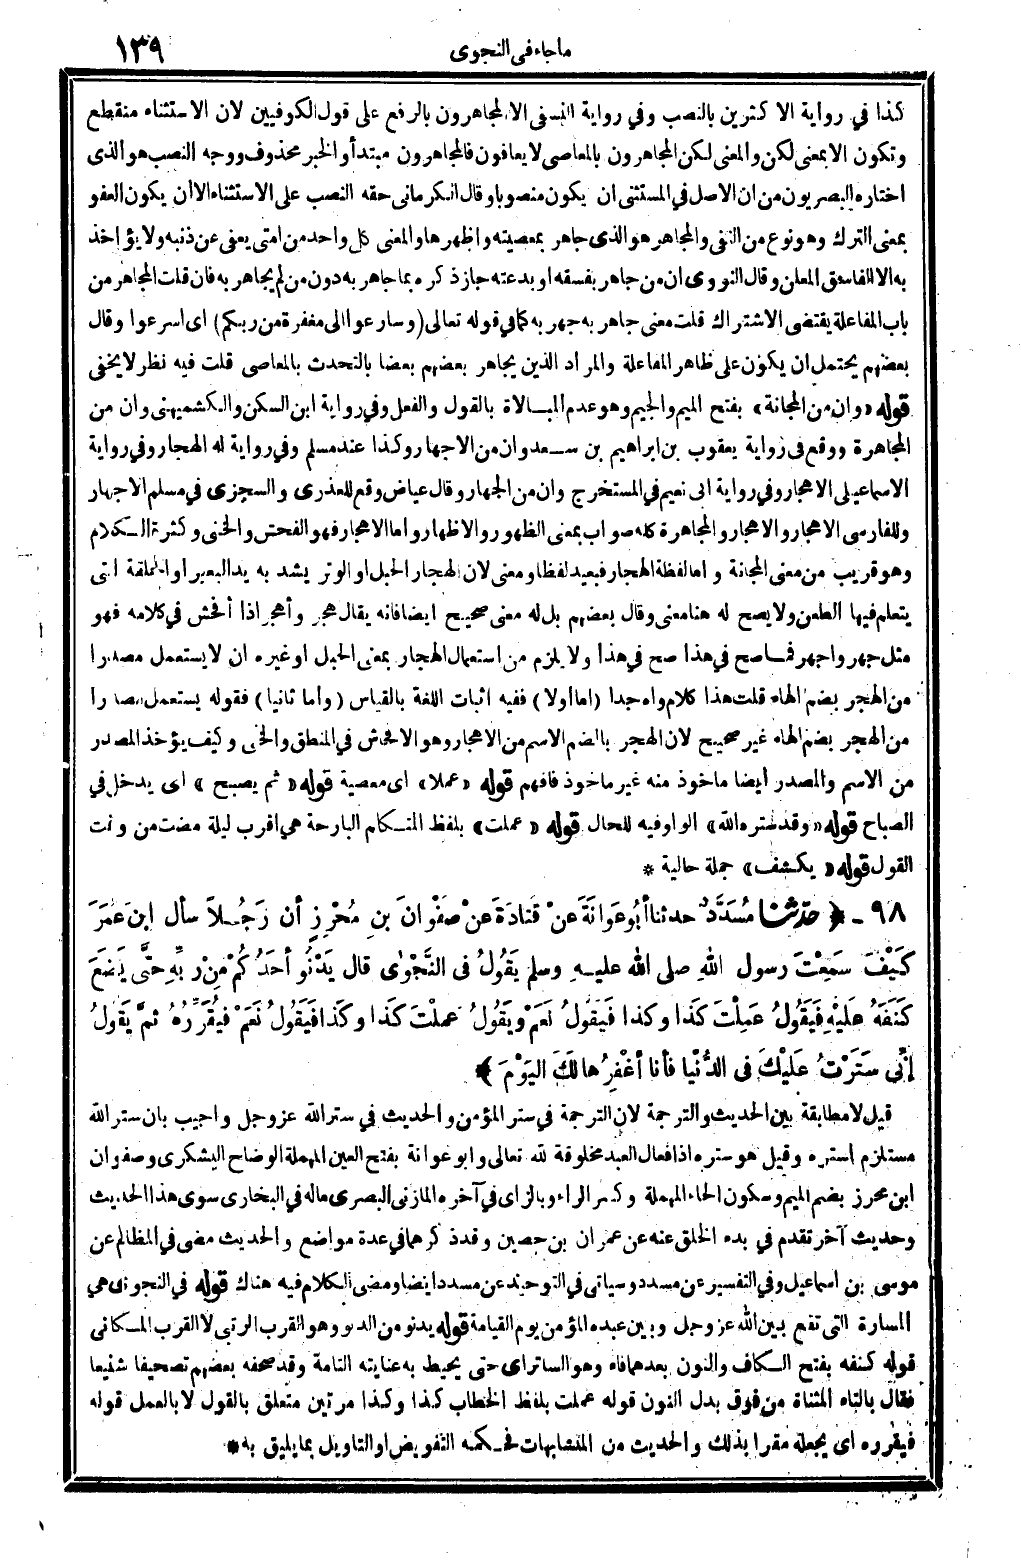 ماجاء في النجوى ١٣٩
كذا في رواية الاكثرين بالنصب وفي رواية النسفى الا المجاهرون بالرفع على قول الكوفيين لان الاستثناء منقطع
وتكون الا بمعنى لكن والمعنى لكن المجاهرون بالمعاصى لا يعافون فالمجاهرون مبتدأ والخبر محذوف ووجه النصب هو الذى
اختاره البصريون من ان الاصل في المستثنى ان يكون منصوبا وقال الكرمانى حقه النصب على الاستثناء الا أن يكون العفو
بمعنى الترك وهو نوع من النفى والمجاهر هو الذى جاهر بمعصيته واظهرها والمعنى كل واحد من امتى يعفى عن ذنبه ولا يؤاخذ
به الا الفاسق المعلن وقال النووى ان من جاهر بفسقه او بدعته جاز ذكره بما جاهر به دون من لم يجاهر به فان قلت المجاهر من
باب المفاعلة يقتضى الاشتراك قلت معنى جاهر به جهر به كما في قوله تعالى (وسارعوا الى مغفرة من ربكم) اى اسرعوا وقال
بعضهم يحتمل ان يكون على ظاهر المفاعلة والمراد الذين يجاهر بعضهم بعضا بالتحدث بالمعاصى قلت فيه نظر لا يخفى
قوله «وان من المجانة» بفتح الميم والجيم وهو عدم المبالاة بالقول والفعل وفي رواية ابن السكن والكشميهنى وان من
المجاهرة ووقع في رواية يعقوب بن ابراهيم بن سعد وان من الاجهار وكذا عند مسلم وفي رواية له الهجار وفي رواية
الاسماعيلى الاهجار وفي رواية ابى نعيم في المستخرج وان من الجهار وقال عياض وقع للعذرى والسجزى في مسلم الاجهار
وللفارسى الاهجار والاهجار والمجاهرة كله صواب بمعنى الظهور والاظهار وأما الاهجار فهو الفحش والخنى وكثرة الكلام
وهو قريب من معنى المجانة واما لفظة الهجار فبعيد لفظا ومعنى لان الهجار الحبل او الوتر يشد به يد البعير أو الحلقة التى
يتعلم فيها الطعن ولا يصح له هنا معنى وقال بعضهم بل له معنى صحيح ايضا فانه يقال هجر وأهجر اذا أفحش في كلامه فهو
مثل جهر واجهر فما صح في هذا صح في هذا ولا يلزم من استعمال الهجار بمعنى الحبل او غيره ان لا يستعمل مصدرا
من الهجر بضم الهاء قلت هذا كلام واه جدا (اما أولا) ففيه اثبات اللغة بالقياس (وأما ثانيا) فقوله يستعمل مصدرا
من الهجر بضم الهاء غير صحيح لان الهجر بالضم الاسم من الاهجار وهو الافحاش في المنطق والخنى وكيف يؤخذ المصدر
من الاسم والمصدر أيضا ماخوذ منه غير ماخوذ فافهم قوله «عملا» اى معصية قوله «ثم يصبح» اى يدخل في
الصباح قوله «وقد ستره الله» الواو فيه للحال قوله «عملت» بلفظ المتكلم البارحة هي اقرب ليلة مضت من وقت
القول قوله «يكشف» جملة حالية *
٩٨ - ﴿ حَدَّثَنَا مُسَدَّدٌ حدثنا أبُو عَوَانَةَ عَنْ قَتَادَةَ عَنْ صَفْوَانَ بنِ مُحْرِزٍ أن رَجُلاً سأل ابنَ عُمَرَ
كَيْفَ سَمِعْتَ رسول اللهِ صلى الله عليه وسلم يَقُولُ في النَّجْوَى قال يَدْنُو أحَدُكُمْ مِنْ رَبِّهِ حتَّى يَضَعَ
كَنَفَهُ عَلَيْهِ فَيَقُولُ عَمِلْتَ كَذَا وكذا فَيَقُولُ نَعَمْ ويَقُولُ عَمِلْتَ كَذَا وكَذَا فَيَقُولُ نَعَمْ فيُقَرِّرُهُ ثمَّ يَقُولُ
إنِّى سَتَرْتُ عَلَيْكَ في الدُّنْيا فأنا أغْفِرُها لَكَ اليَوْمَ ﴾
قيل لا مطابقة بين الحديث والترجمة لان الترجمة في ستر المؤمن والحديث في ستر الله عز وجل واجيب بان ستر الله
مستلزم لستره وقيل هو ستره اذ افعال العبد مخلوقة لله تعالى وابو عوانة بفتح العين المهملة الوضاح اليشكرى وصفوان
ابن محرز بضم الميم وسكون الحاء المهملة وكسر الراء وبالزاى في آخره المازنى البصرى ماله في البخارى سوى هذا الحديث
وحديث آخر تقدم في بدء الخلق عنه عن عمران بن حصين وقد ذكرهما في عدة مواضع والحديث مضى في المظالم عن
موسى بن اسماعيل وفي التفسير عن مسدد وسياتى في التوحيد عن مسدد ايضا ومضى الكلام فيه هناك قوله في النجوى هي
المسارة التى تقع بين الله عز وجل وبين عبده المؤمن يوم القيامة قوله يدنو من الدنو وهو القرب الرتبى لا القرب المكانى
قوله كنفه بفتح الكاف والنون بعدهما فاء وهو الساتر اى حتى يحيط به عنايته التامة وقد صحفه بعضهم تصحيفا شنيعا
فقال بالتاء المثناة من فوق بدل النون قوله عملت بلفظ الخطاب كذا وكذا مرتين متعلق بالقول لا بالعمل قوله
فيقرره اى يجعله مقرا بذلك والحديث من المتشابهات فحكمه التفويض او التاويل بما يليق به *